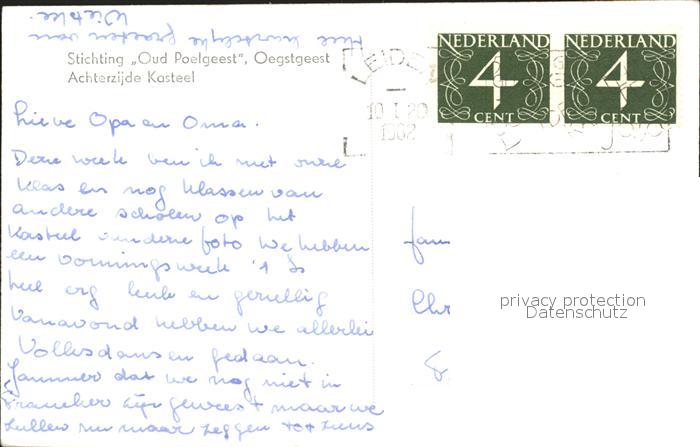 Hele hartelijke groeten van
Wietske.
Stichting „Oud Poelgeest”, Oegstgeest
Achterzijde Kasteel
NEDERLAND
4
CENT
NEDERLAND
4
CENT
LEIDEN
10 I 20
1962
Lieve Opa en Oma.
Deze week ben ik met onze
klas en nog klassen van
andere scholen op het
kasteel van deze foto we hebben
een vormingsweek 't is
heel erg leuk en gezellig
Vanavond hebben we allerlei
Volksdansen gedaan.
Jammer dat we nog niet in
Franeker zijn geweest maar we
zullen nu maar zeggen tot ziens
fam
Chr
privacy protection
Datenschutz